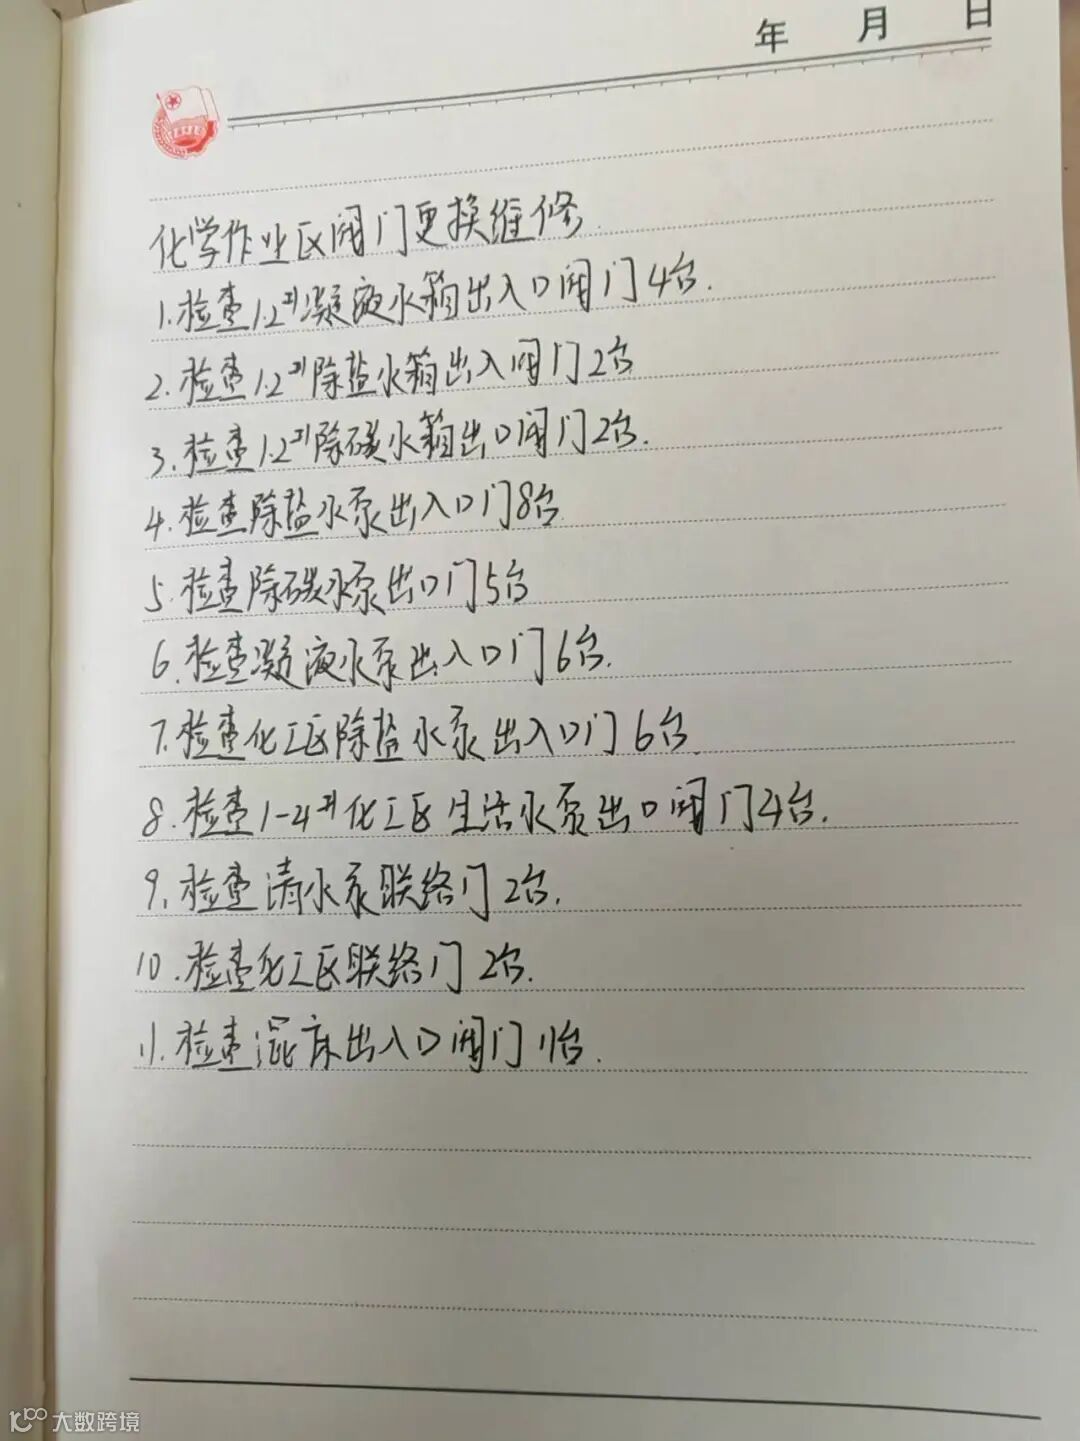 年 月 日
化学作业区阀门更换维修
1.检查1.2#凝液水箱出入口阀门4台.
2.检查1.2#除盐水箱出入阀门2台
3.检查1.2#除碳水箱出口阀门2台.
4.检查除盐水泵出入口门8台
5.检查除碳水泵出口门5台
6.检查凝液水泵出入口门6台.
7.检查化工区除盐水泵出入口门6台.
8.检查1-4#化工区生活水泵出口阀门4台.
9.检查清水泵联络门2台.
10.检查化工区联络门2台.
11.检查混床出入口阀门11台.
大数跨境